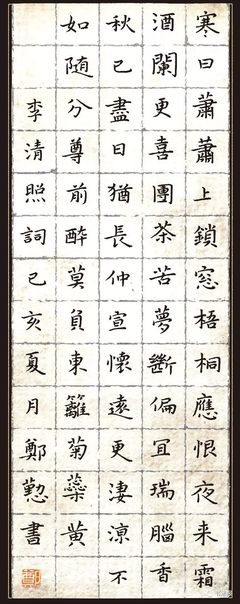 寒日蕭蕭上鎖窓梧桐應恨夜来霜
酒闌更喜團茶苦夢斷偏冝瑞腦香
秋已盡日猶長仲宣懷遠更淒涼不
如随分尊前醉莫負東籬菊蘂黄
李清照詞己亥夏月鄭懃書